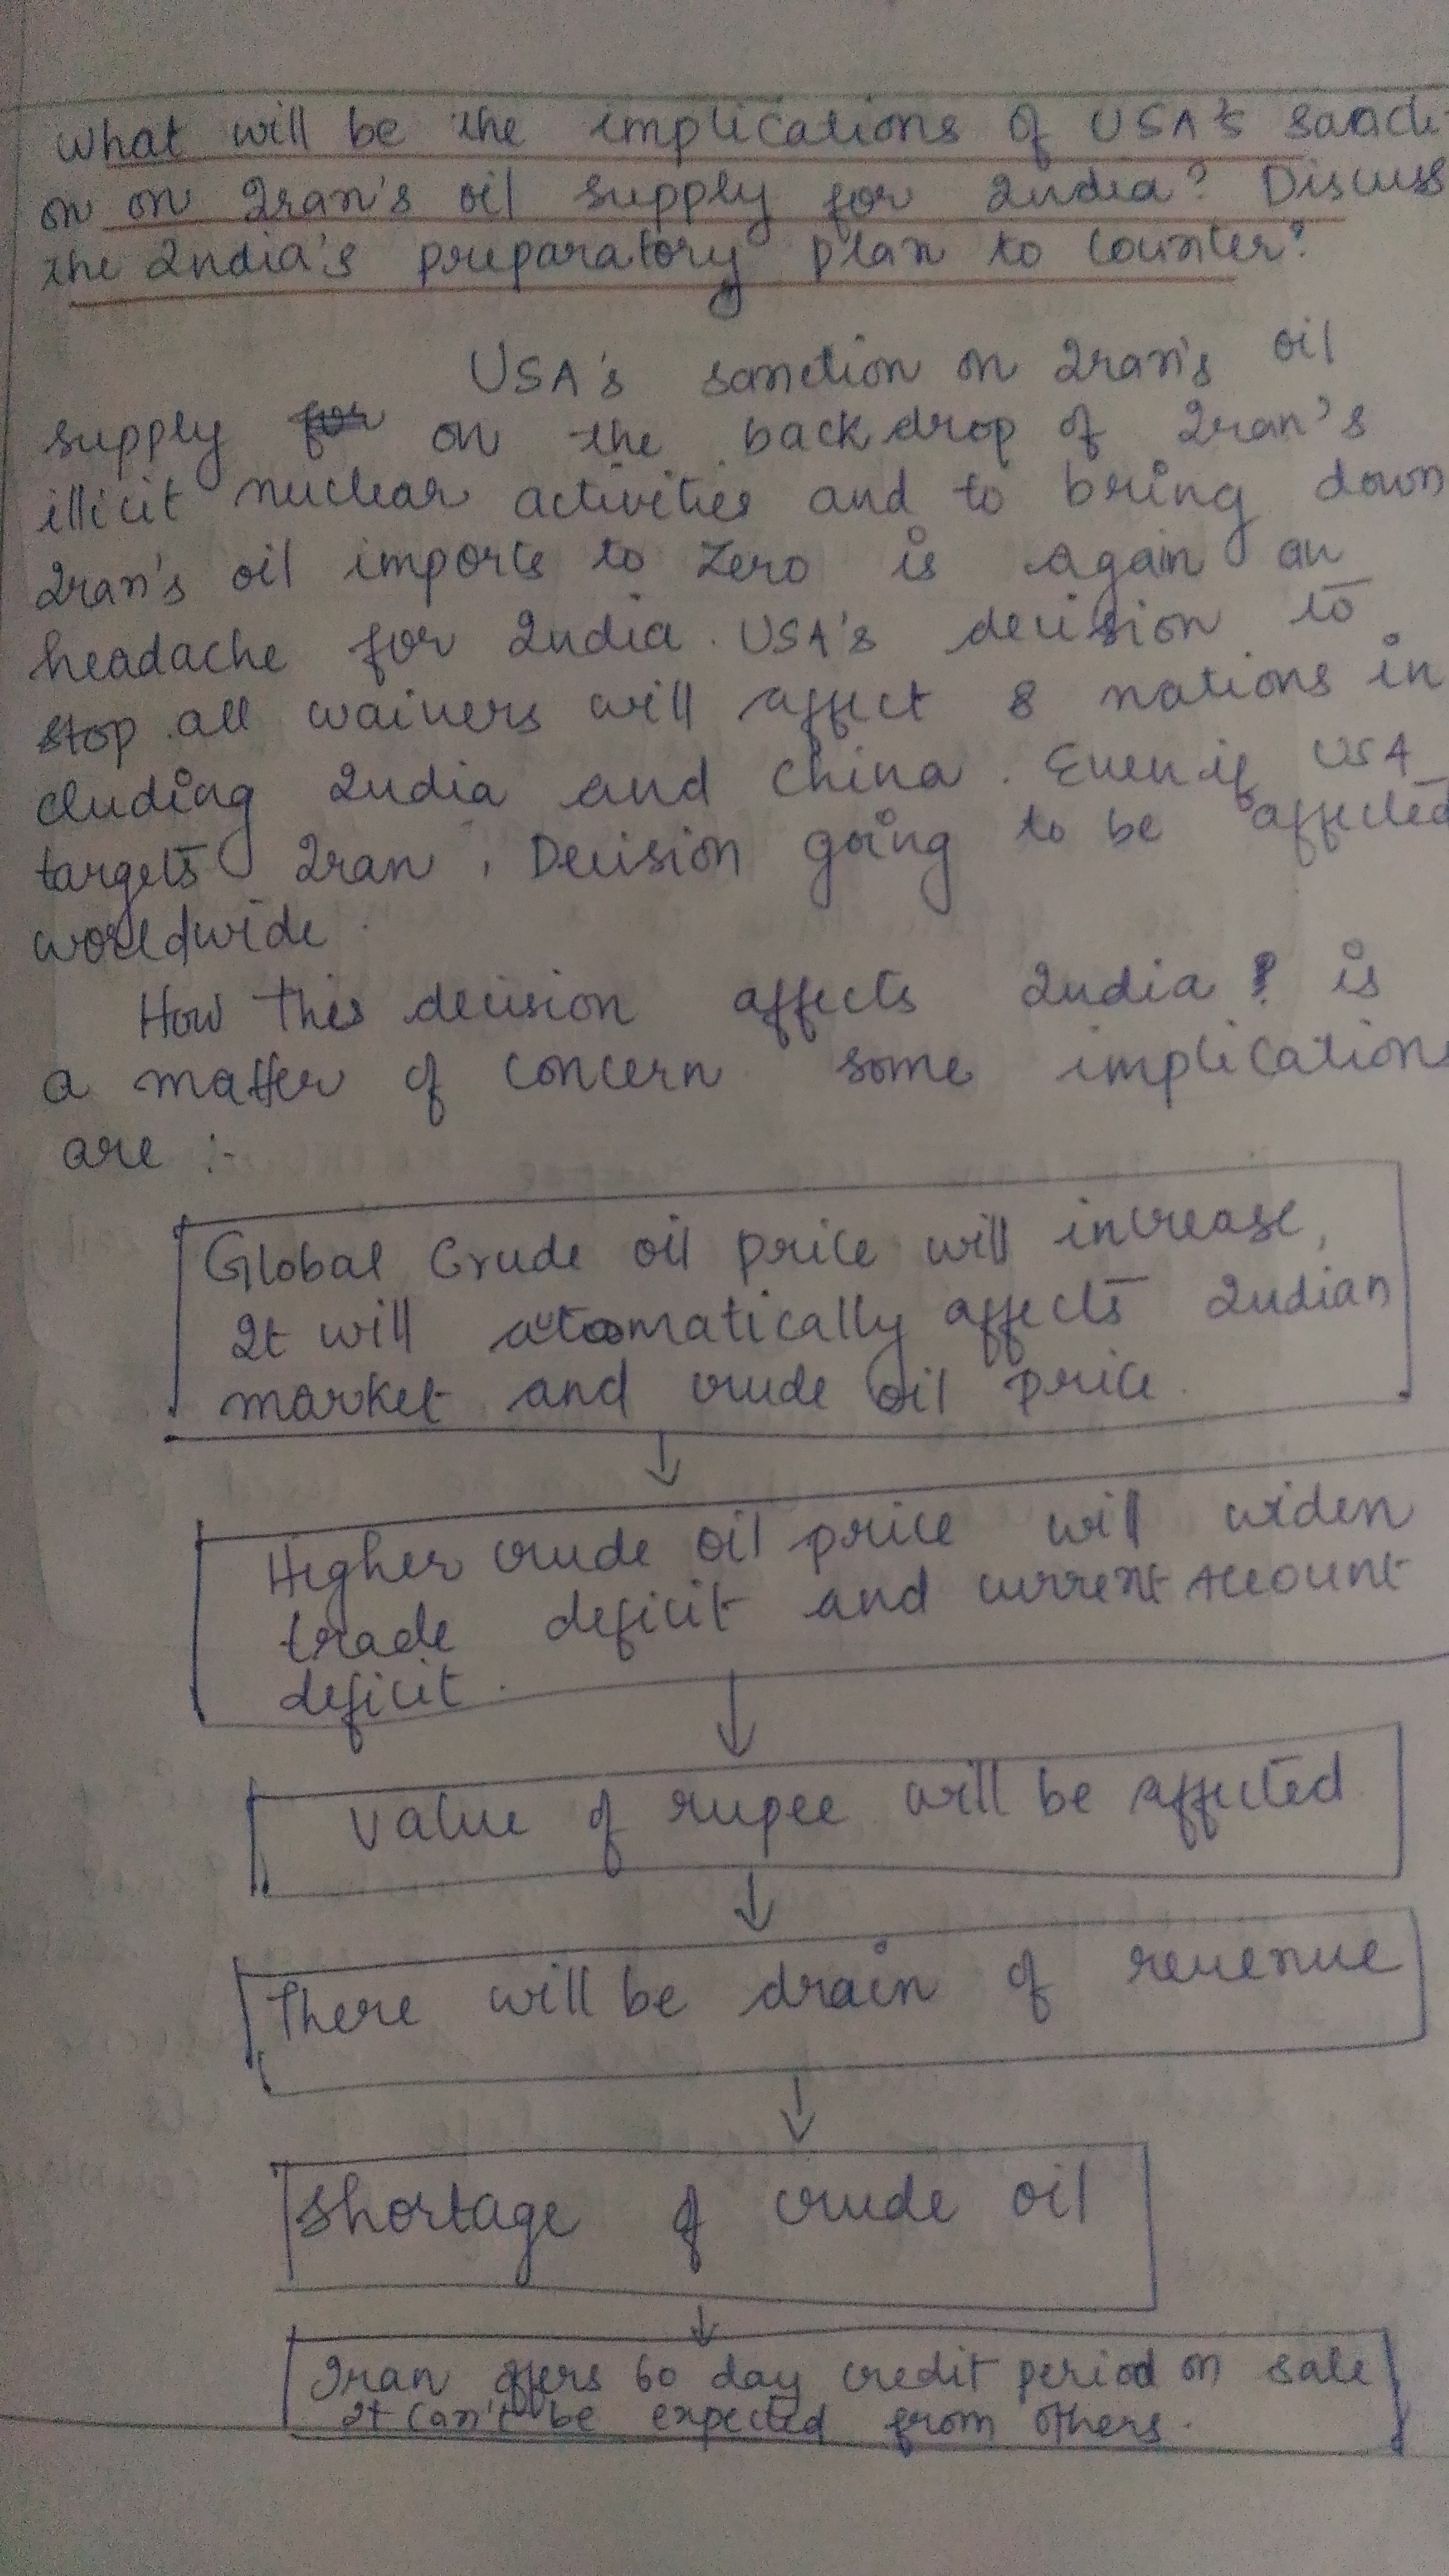 What will be the implications of USA's sancti
on on Iran's oil supply for India? Discuss
the India's preparatory plan to counter?
USA's sanction on Iran's oil
supply for on the backdrop of Iran's
illicit nuclear activities and to bring down
Iran's oil imports to zero is again an
headache for India. USA's decision to
stop all waivers will affect 8 nations in
cluding India and China. Even if USA
targets Iran, Decision going to be affected
worldwide.
How this decision affects India? is
a matter of concern some implication
are :-
Global Crude oil price will increase,
It will automatically affects Indian
market and crude oil price.
Higher crude oil price will widen
trade deficit and current Account
deficit.
Value of rupee will be affected
There will be drain of revenue
Shortage of crude oil
Iran offers 60 day credit period on sale
It can't be expected from others.